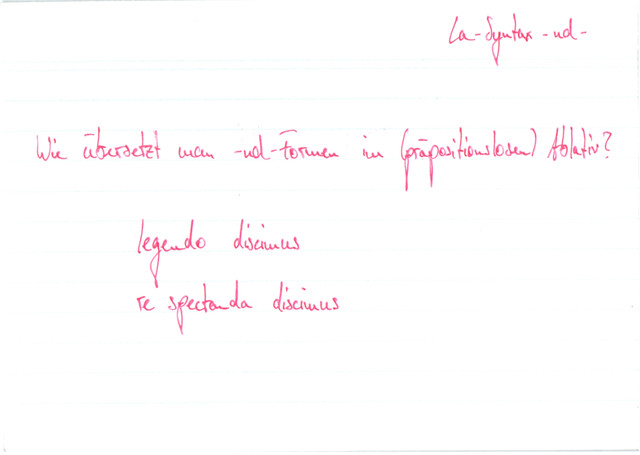 La-Syntax -nd-
Wie übersetzt man -nd-Formen im (präpositionslosen) Ablativ?
legendo discimus
re spectanda discimus